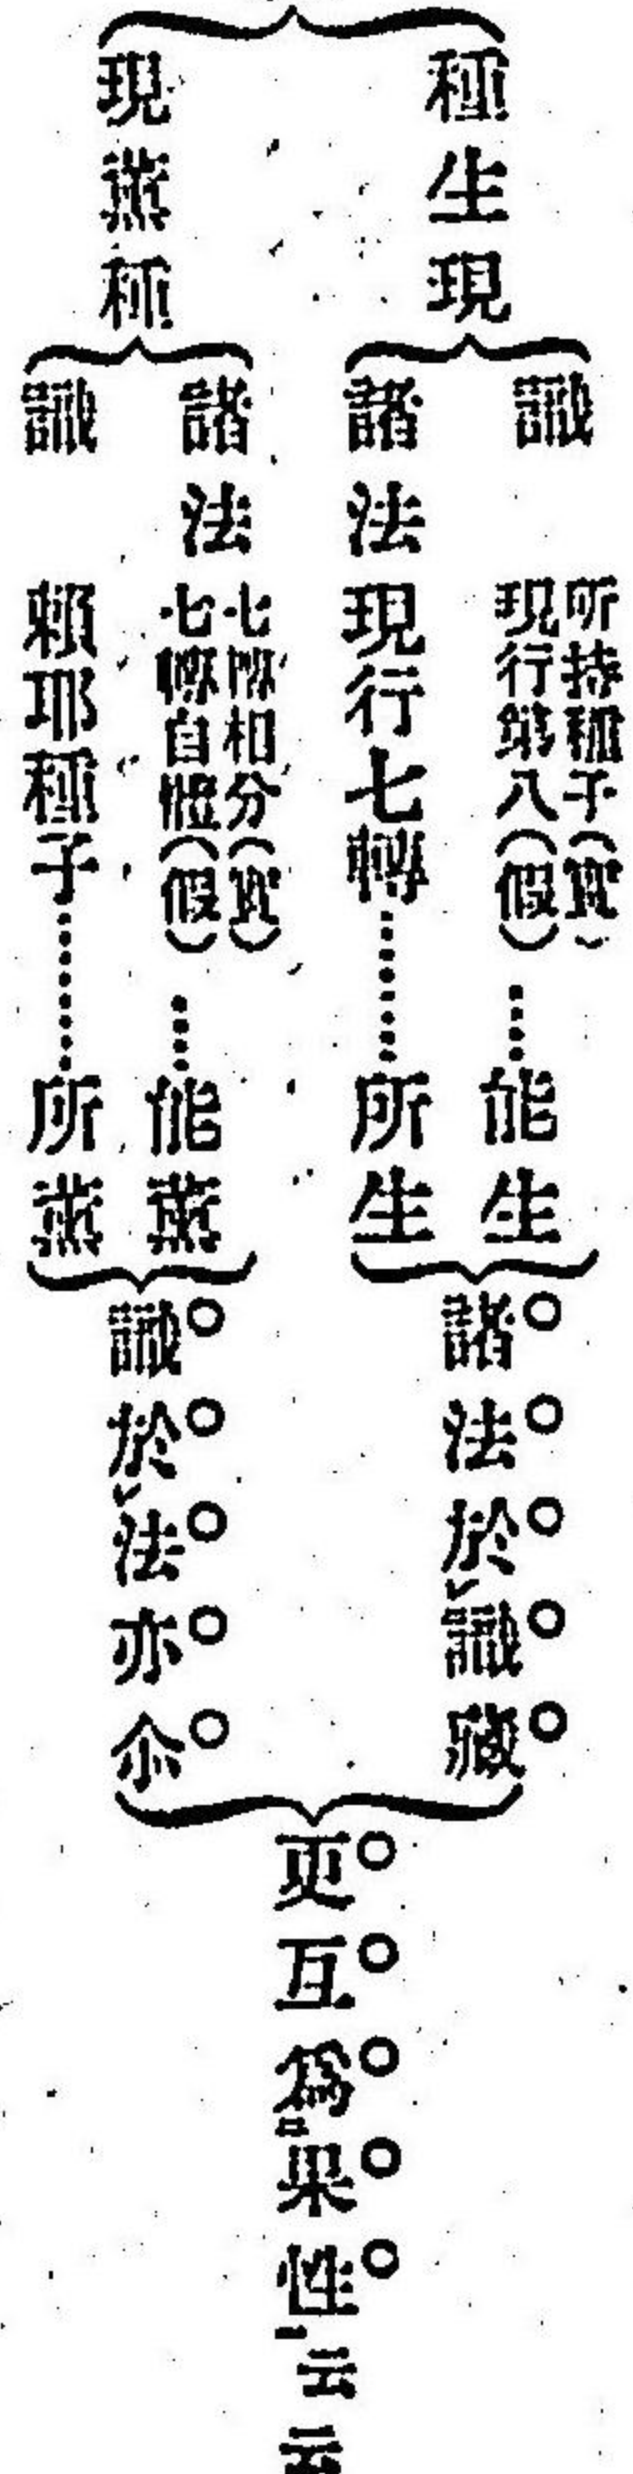 種生現
識
所持種子(實)
現行第八(假)
……能生
諸法
現行七轉……所生
諸法於㆑識藏
現熏種
諸法
七轉相分(實)
七轉自體(假)
……能熏
識
賴耶種子……所熏
識於㆑法亦尒
更互爲㆓果性㆒云云